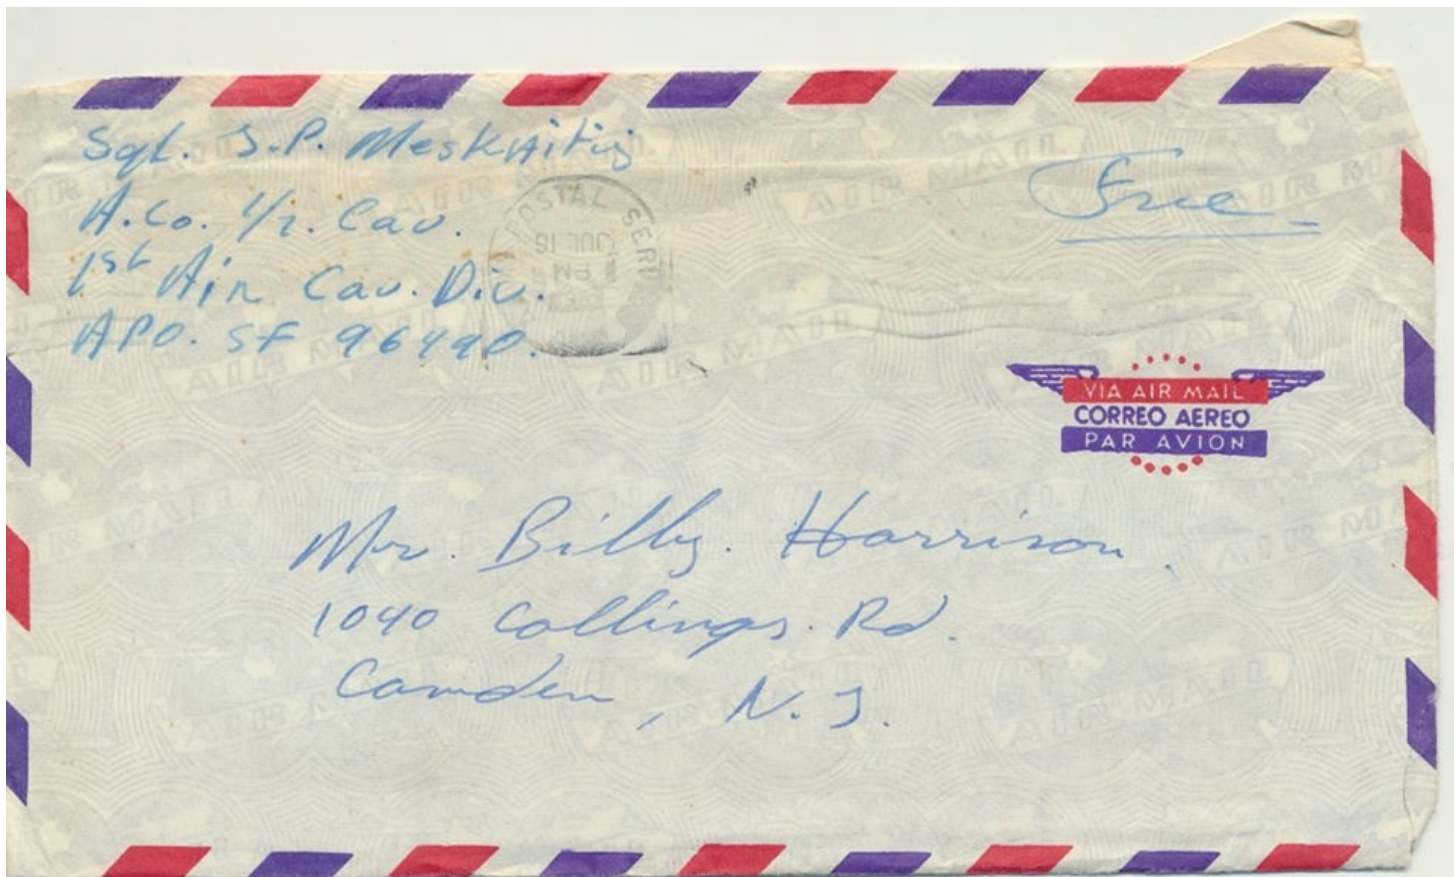 Sgt. S.P. Meskaitis
A. Co. 1/12. Cav.
1st Air Cav. Div.
APO. SF 96490.
Free
POSTAL SERV
JUL 18
PM
VIA AIR MAIL
CORREO AEREO
PAR AVION
Mr. Billy. Harrison.
1040 Collings. Rd.
Camden, N. J.